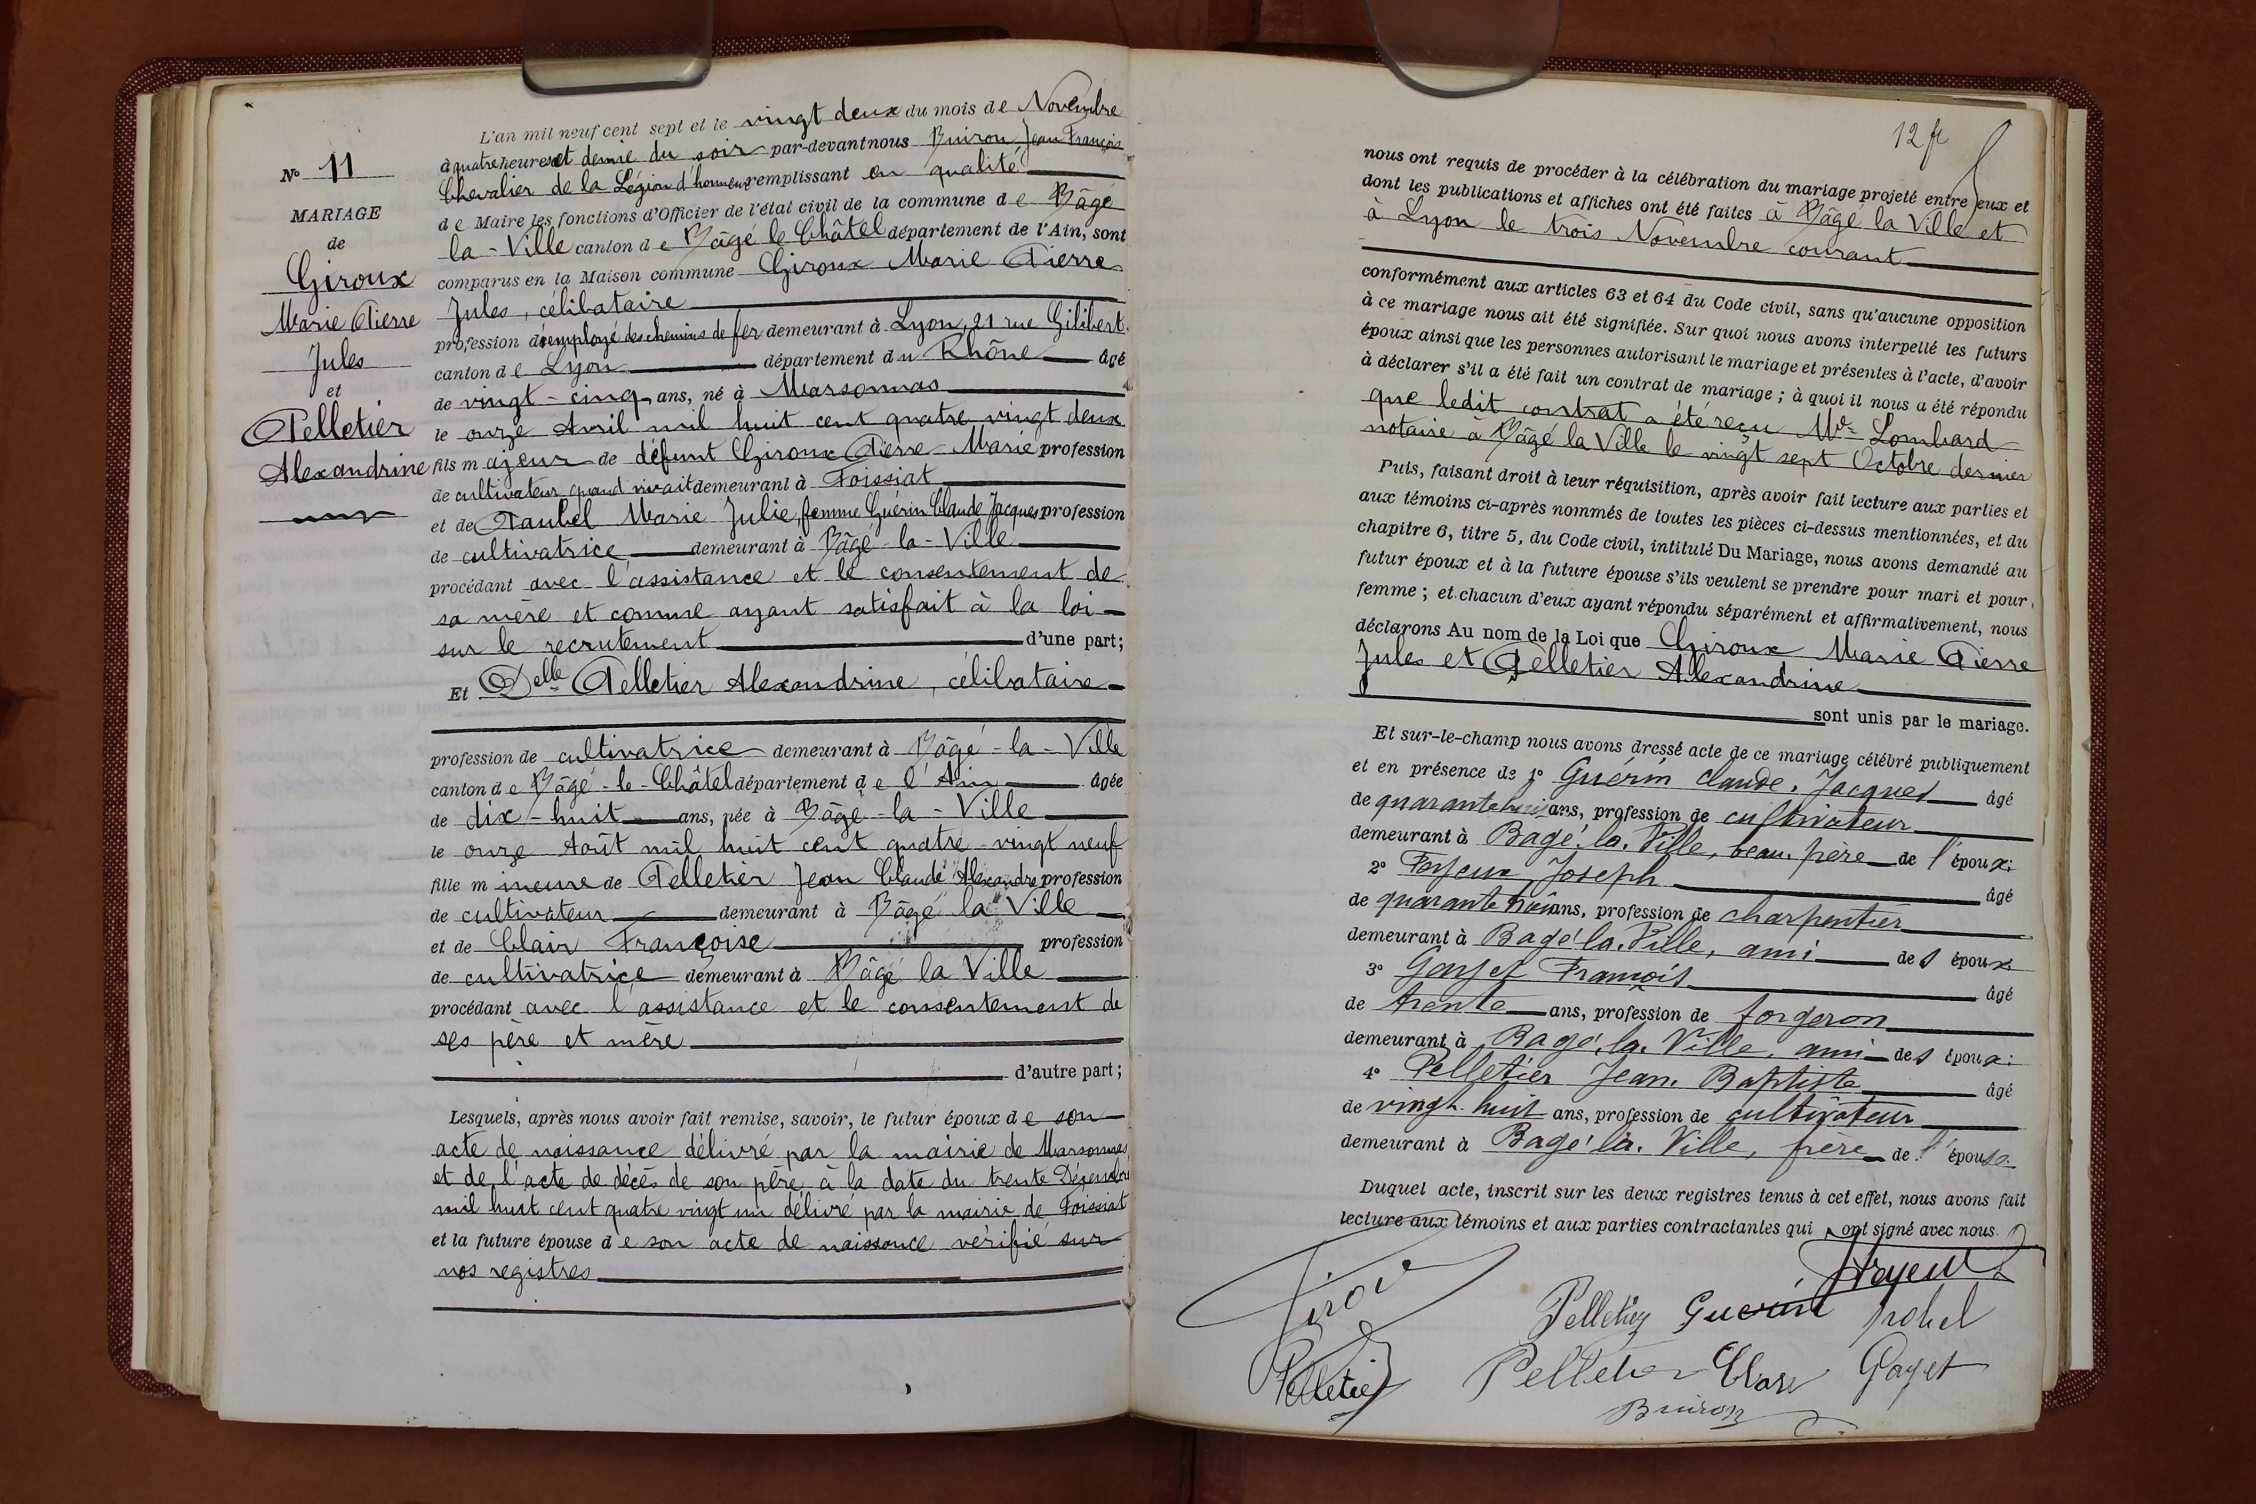 N° 11
MARIAGE
de
Giroux
Marie Pierre
Jules
et
Pelletier
Alexandrine
L'an mil neuf cent sept et le vingt deux du mois de Novembre
à quatre heures et demie du soir par-devant nous Buiron Jean François
Chevalier de la Légion d'honneur remplissant en qualité
de Maire les fonctions d'Officier de l'état civil de la commune de Bâgé
la-Ville canton de Bâgé le Châtel département de l'Ain, sont
comparus en la Maison commune Giroux Marie Pierre
Jules, célibataire
profession d'employé des chemins de fer demeurant à Lyon, 21 rue Gilibert
canton de Lyon département du Rhône âgé
de vingt-cinq ans, né à Marsonnas
le onze Avril mil huit cent quatre vingt deux
fils majeur de défunt Giroux Pierre-Marie profession
de cultivateur quand vivait demeurant à Foissiat
et de Paubel Marie Julie, femme Guérin Claude Jacques profession
de cultivatrice demeurant à Bâgé-la-Ville
procédant avec l'assistance et le consentement de
sa mère et comme ayant satisfait à la loi
sur le recrutement d'une part;
Et Delle Pelletier Alexandrine, célibataire
profession de cultivatrice demeurant à Bâgé-la-Ville
canton de Bâgé-le-Châtel département de l'Ain âgée
de dix-huit ans, née à Bâgé-la-Ville
le onze Août mil huit cent quatre-vingt neuf
fille mineure de Pelletier Jean Claude Alexandre profession
de cultivateur demeurant à Bâgé la Ville
et de Clair Françoise profession
de cultivatrice demeurant à Bâgé la Ville
procédant avec l'assistance et le consentement de
ses père et mère
d'autre part;
Lesquels, après nous avoir fait remise, savoir, le futur époux de son
acte de naissance délivré par la mairie de Marsonnas
et de l'acte de décès de son père à la date du trente Décembre
mil huit cent quatre vingt un délivré par la mairie de Foissiat
et la future épouse de son acte de naissance vérifié sur
nos registres
12 ft
nous ont requis de procéder à la célébration du mariage projeté entre eux et
dont les publications et affiches ont été faites à Bâgé la Ville et
à Lyon le trois Novembre courant
conformément aux articles 63 et 64 du Code civil, sans qu'aucune opposition
à ce mariage nous ait été signifiée. Sur quoi nous avons interpellé les futurs
époux ainsi que les personnes autorisant le mariage et présentes à l'acte, d'avoir
à déclarer s'il a été fait un contrat de mariage; à quoi il nous a été répondu
que ledit contrat a été reçu Me Lombard
notaire à Bâgé la Ville le vingt sept Octobre dernier
Puis, faisant droit à leur réquisition, après avoir fait lecture aux parties et
aux témoins ci-après nommés de toutes les pièces ci-dessus mentionnées, et du
chapitre 6, titre 5, du Code civil, intitulé Du Mariage, nous avons demandé au
futur époux et à la future épouse s'ils veulent se prendre pour mari et pour
femme; et chacun d'eux ayant répondu séparément et affirmativement, nous
déclarons Au nom de la Loi que Giroux Marie Pierre
Jules et Pelletier Alexandrine
sont unis par le mariage.
Et sur-le-champ nous avons dressé acte de ce mariage célébré publiquement
et en présence de 1° Guérin Claude, Jacques âgé
de quarante huit ans, profession de cultivateur
demeurant à Bagé. la. Ville, beau. père de l'époux;
2° Foyeux Joseph âgé
de quarante trois ans, profession de charpentier
demeurant à Bagé la. Ville, ami des époux
3° Gayet François âgé
de trente ans, profession de forgeron
demeurant à Bagé. la. Ville, ami des époux;
4° Pelletier Jean. Baptiste âgé
de vingt. huit ans, profession de cultivateur
demeurant à Bagé la. Ville, frère de l'épouse.
Duquel acte, inscrit sur les deux registres tenus à cet effet, nous avons fait
lecture aux témoins et aux parties contractantes qui ont signé avec nous.
Girou
Pelletier Guérin
Pelletier
Pelletier Gayet
Buiron